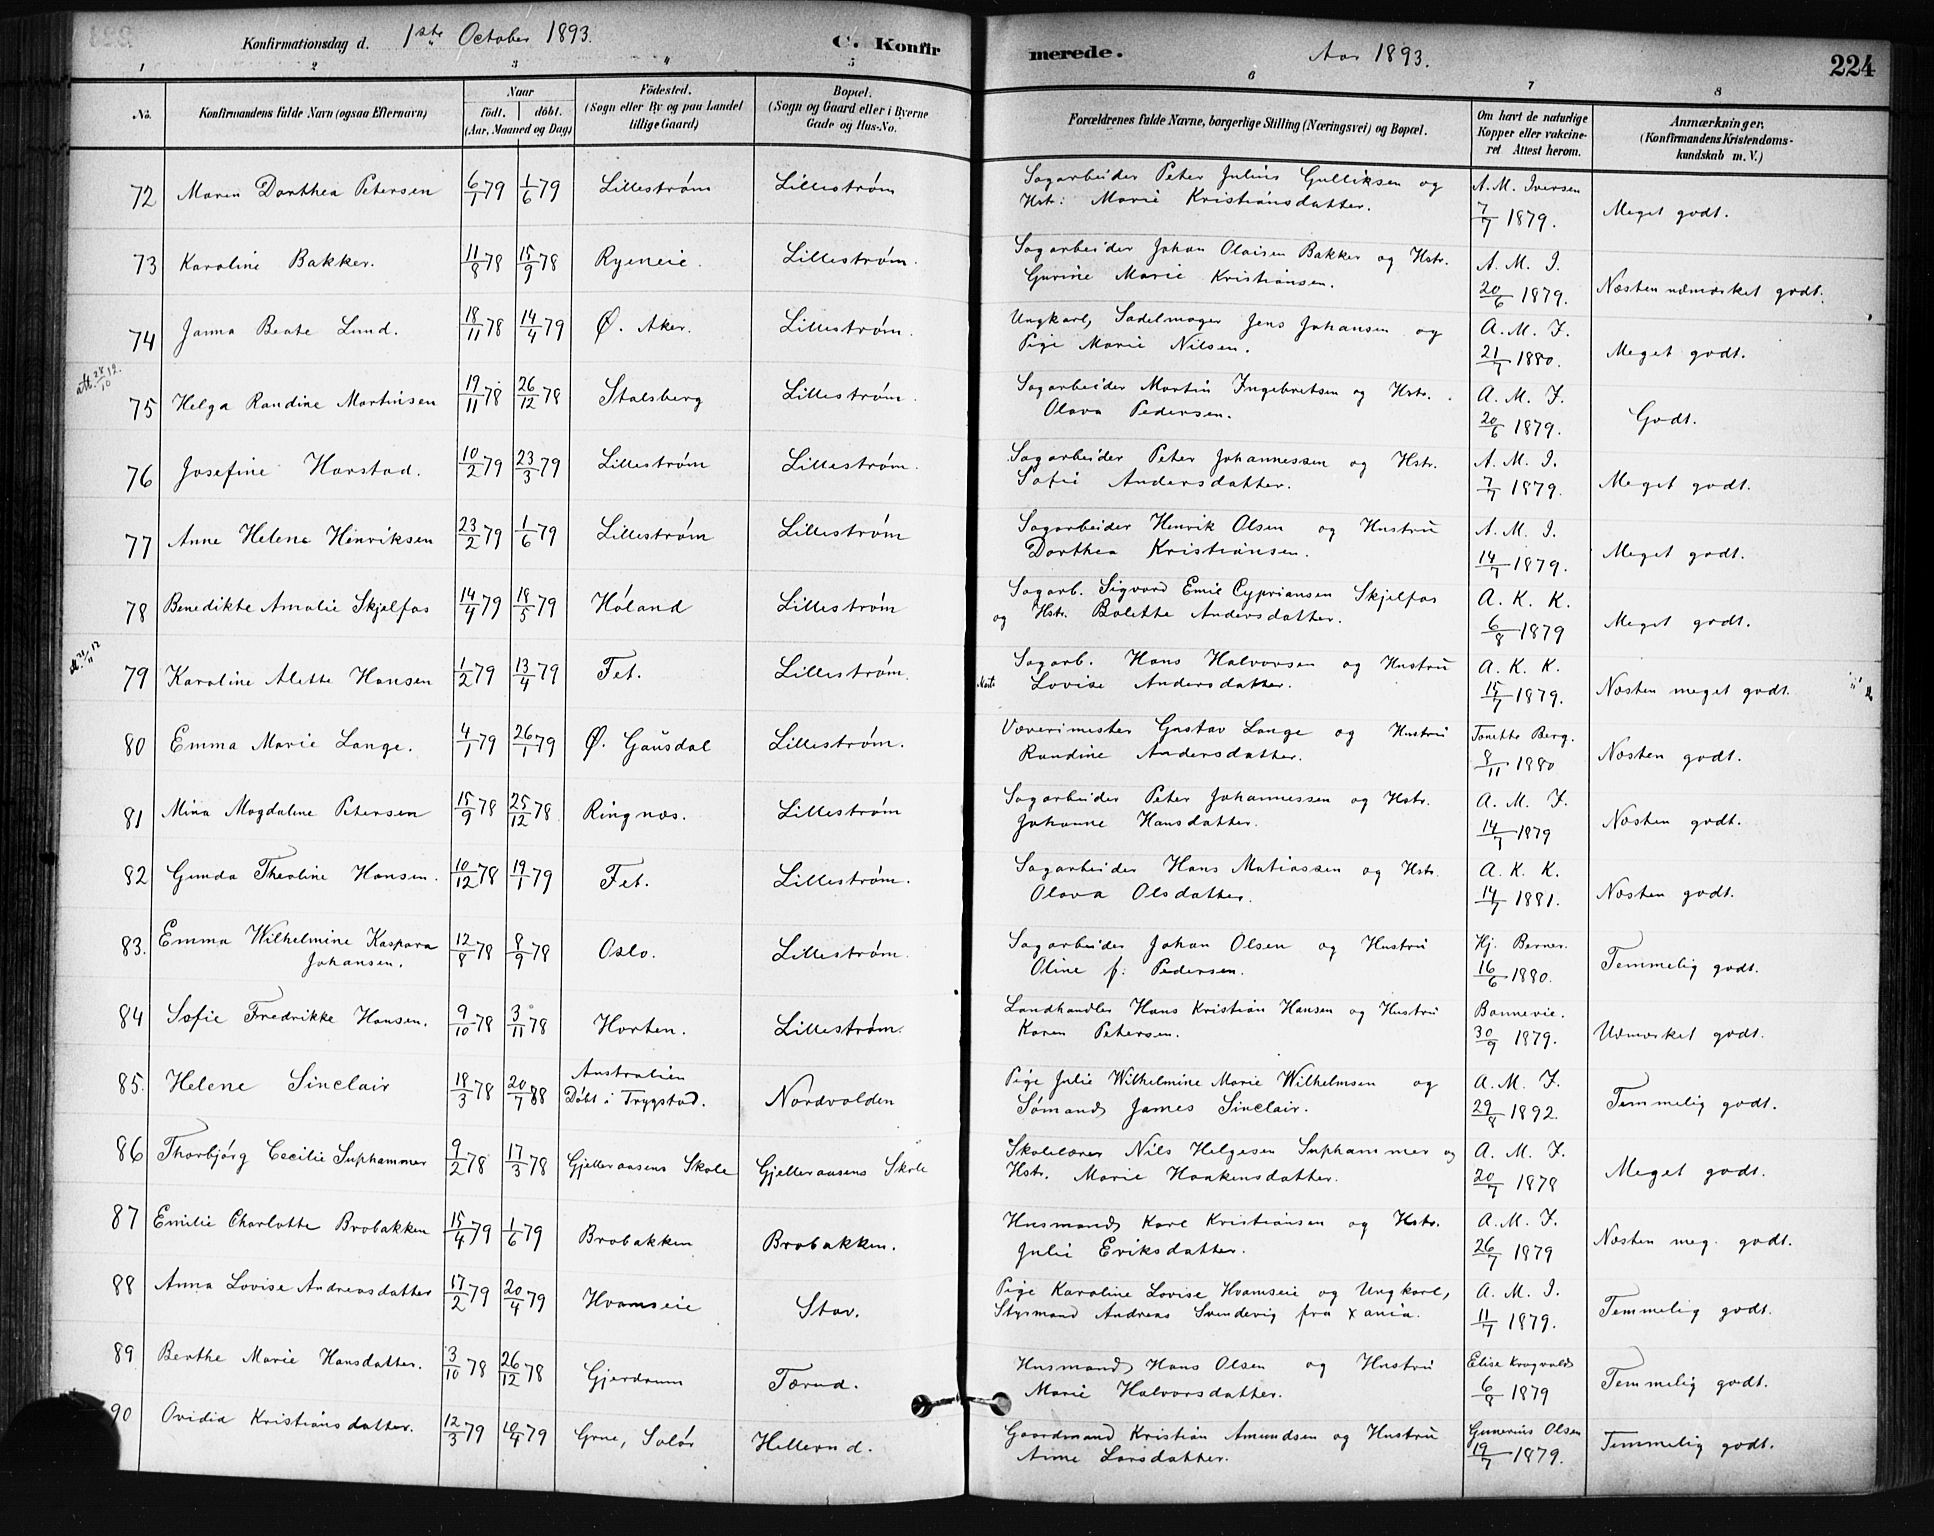 Konfirmationsdag d. 1ste October 1893. C. Konfirmerede. Aar 1893. 224
1 2 3 4 5 6 7 8
No. Konfirmandens fulde Navn (ogsaa Efternavn) Naar født. døbt. (Aar, Maaned og Dag) Fødested. (Sogn eller By og paa Landet tillige Gaard) Bopæl. (Sogn og Gaard eller i Byerne Gade og Hus-No. Forældrenes fulde Navne, borgerlige Stilling (Næringsvei) og Bopæl. Om havt de naturlige Kopper eller vakcineret Attest herom. Anmærkninger. (Konfirmandens Kristendomskundskab m. V.)
72 Maren Dorthea Petersen 6/1 79 1/6 79 Lillestrøm Lillestrøm Sagarbeider Peter Julius Gulliksen og Hstr: Marie Kristiansdatter. A. M. Iversen 7/7 1879. Meget godt.
73 Karoline Bakker. 11/8 78 15/9 78 Ryeneie. Lillestrøm. Sagarbeider Johan Olaisen Bakker og Hstr. Gurine Marie Kristiansen. A. M. I. 20/6 1879. Næsten udmærket godt.
74 Janna Beate Lund. 18/11 78 14/4 79 Ø. Aker. Lillestrøm. Ungkarl, Sadelmager Jens Johansen og Pige Marie Nilsen. A. M. I. 21/7 1880. Meget godt.
att. 28/10 12.
75 Helga Randine Martinsen 19/11 78 26/12 78 Stalsberg Lillestrøm. Sagarbeider Martin Ingebretsen og Hstr. Olava Pedersen. A. M. I. 20/6 1879. Godt.
76 Josefine Harstad. 10/2 79 23/3 79 Lillestrøm Lillestrøm. Sagarbeider Peter Johannessen og Hstr. Sofie Andersdatter. A. M. I. 7/7 1879. Meget godt.
77 Anne Helene Henriksen 23/2 79 1/6 79 Lillestrøm Lillestrøm Sagarbeider Henrik Olsen og Hustru Dorthea Kristiansen. A. M. I. 14/7 1879. Meget godt.
78 Benedikte Amalie Skjelfos 14/4 79 18/5 79 Høland Lillestrøm Sagarb. Sigvard Emil Cypriansen Skjelfos og Hstr. Bolette Andersdatter. A. K. K. 6/8 1879 Meget godt.
79 Karoline Alette Hansen 1/2 79 13/4 79 Fet. Lillestrøm. Sagarb. Hans Halvorsen og Hustru Marte Lovise Andersdatter. A. K. K. 15/7 1879. Næsten meget godt.
80 Emma Marie Lange. 4/1 79 26/1 79 Ø. Gausdal Lillestrøm. Væverimester Gustav Lange og Hustru Randine Andersdatter. Tonette Berg. 8/11 1880 Næsten godt.
81 Mina Magdalene Petersen 15/9 78 25/12 78. Ringnæs. Lillestrøm Sagarbeider Peter Johannessen og Hstr. Johanne Hansdatter. A. M. I. 14/7 1879 Næsten godt.
82 Gunda Theoline Hansen. 10/12 78 19/1 79 Fet. Lillestrøm. Sagarbeider Hans Matiassen og Hstr. Olava Olsdatter. A. K. K. 14/7 1881. Næsten godt.
83. Emma Wilhelmine Kaspara Johansen. 12/8 78 8/9 78 Oslo. Lillestrøm. Sagarbeider Johan Olsen og Hustru Oline f: Pedersen. Hj. Berner. 16/6 1880. Temmelig godt.
84 Sofie Fredrikke Hansen. 9/10 78 3/11 78 Horten. Lillestrøm. Landhandler Hans Kristian Hansen og Hustru Karen Petersen. Bonnevie. 30/9 1879. Udmærket godt.
85. Helene Sinclair 18/3 78 20/7 88 Australien Døbt i Trygstad. Nordvolden Pige Julie Wilhelmine Marie Wilhelmsen og Sømand James Sinclair. A. M. I. 29/8 1892. Temmelig godt.
86 Thorbjørg Cecilie Suphammer 9/2 78 17/3 78 Gjelleraasens Skole Gjelleraasens Skole Skolelærer Nils Helgesen Suphammer og Hstr. Marie Haakensdatter. A. M. I. 20/7 1878 Meget godt.
87 Emilie Charlotte Brobakken 15/4 79 1/6 79 Brobakken Brobakken. Husmand Karl Kristiansen og Hstr. Julie Eriksdatter. A. M. I. 26/7 1879 Næsten meg. godt.
88 Anna Lovise Andreasdatter 17/2 79 20/4 79 Hvamseie Stav. Pige Karoline Lovise Hvamseie og Ungkarl, Styrmand Andreas Svindevig fra Xania. A. M. I. 11/7 1879. Temmelig godt.
89 Berthe Marie Hansdatter. 3/10 78 26/12 78 Gjerdrum Tærud. Husmand Hans Olsen og Hustru Marie Halvorsdatter. Elise Krogvold 6/8 1879 Temmelig godt.
90 Ovidia Kristiansdatter. 12/3 79 10/4 79 Grue, Solør Hellerud. Gaardmand Kristian Amundsen og Hustru Anne Larsdatter. Gunerius Olsen 19/7 1879. Temmelig godt.